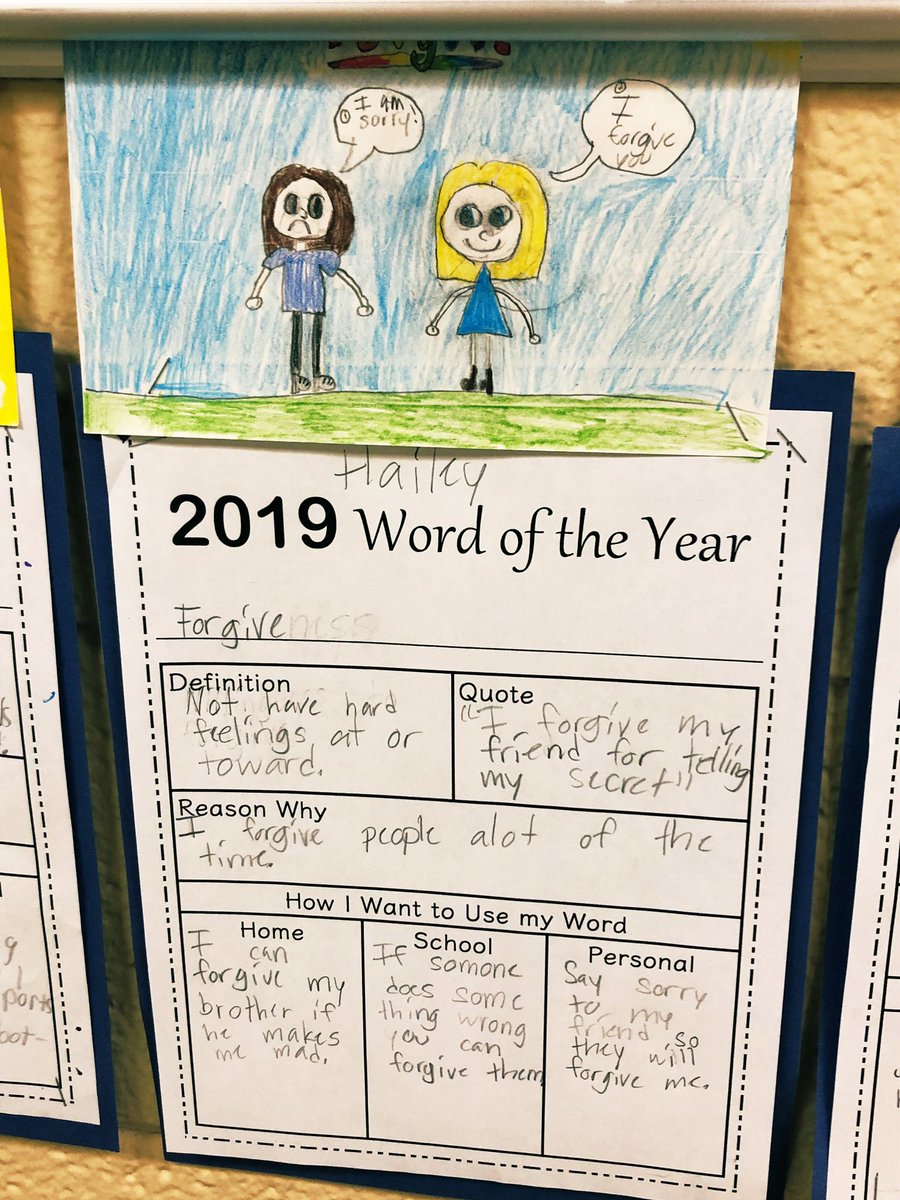 ① I am
sorry!
① I
forgive
you
Hailey
2019 Word of the Year
Forgiveness
Definition
Not have hard
feelings at or
toward.
Quote
"I forgive my
friend for telling
my secret"
Reason Why
I forgive people alot of the
time.
How I Want to Use my Word
Home
I can
forgive my
brother if
he makes
me mad.
School
If somone
does some
thing wrong
you can
forgive them
Personal
Say sorry
to my
friend so
they will
forgive me.
ports